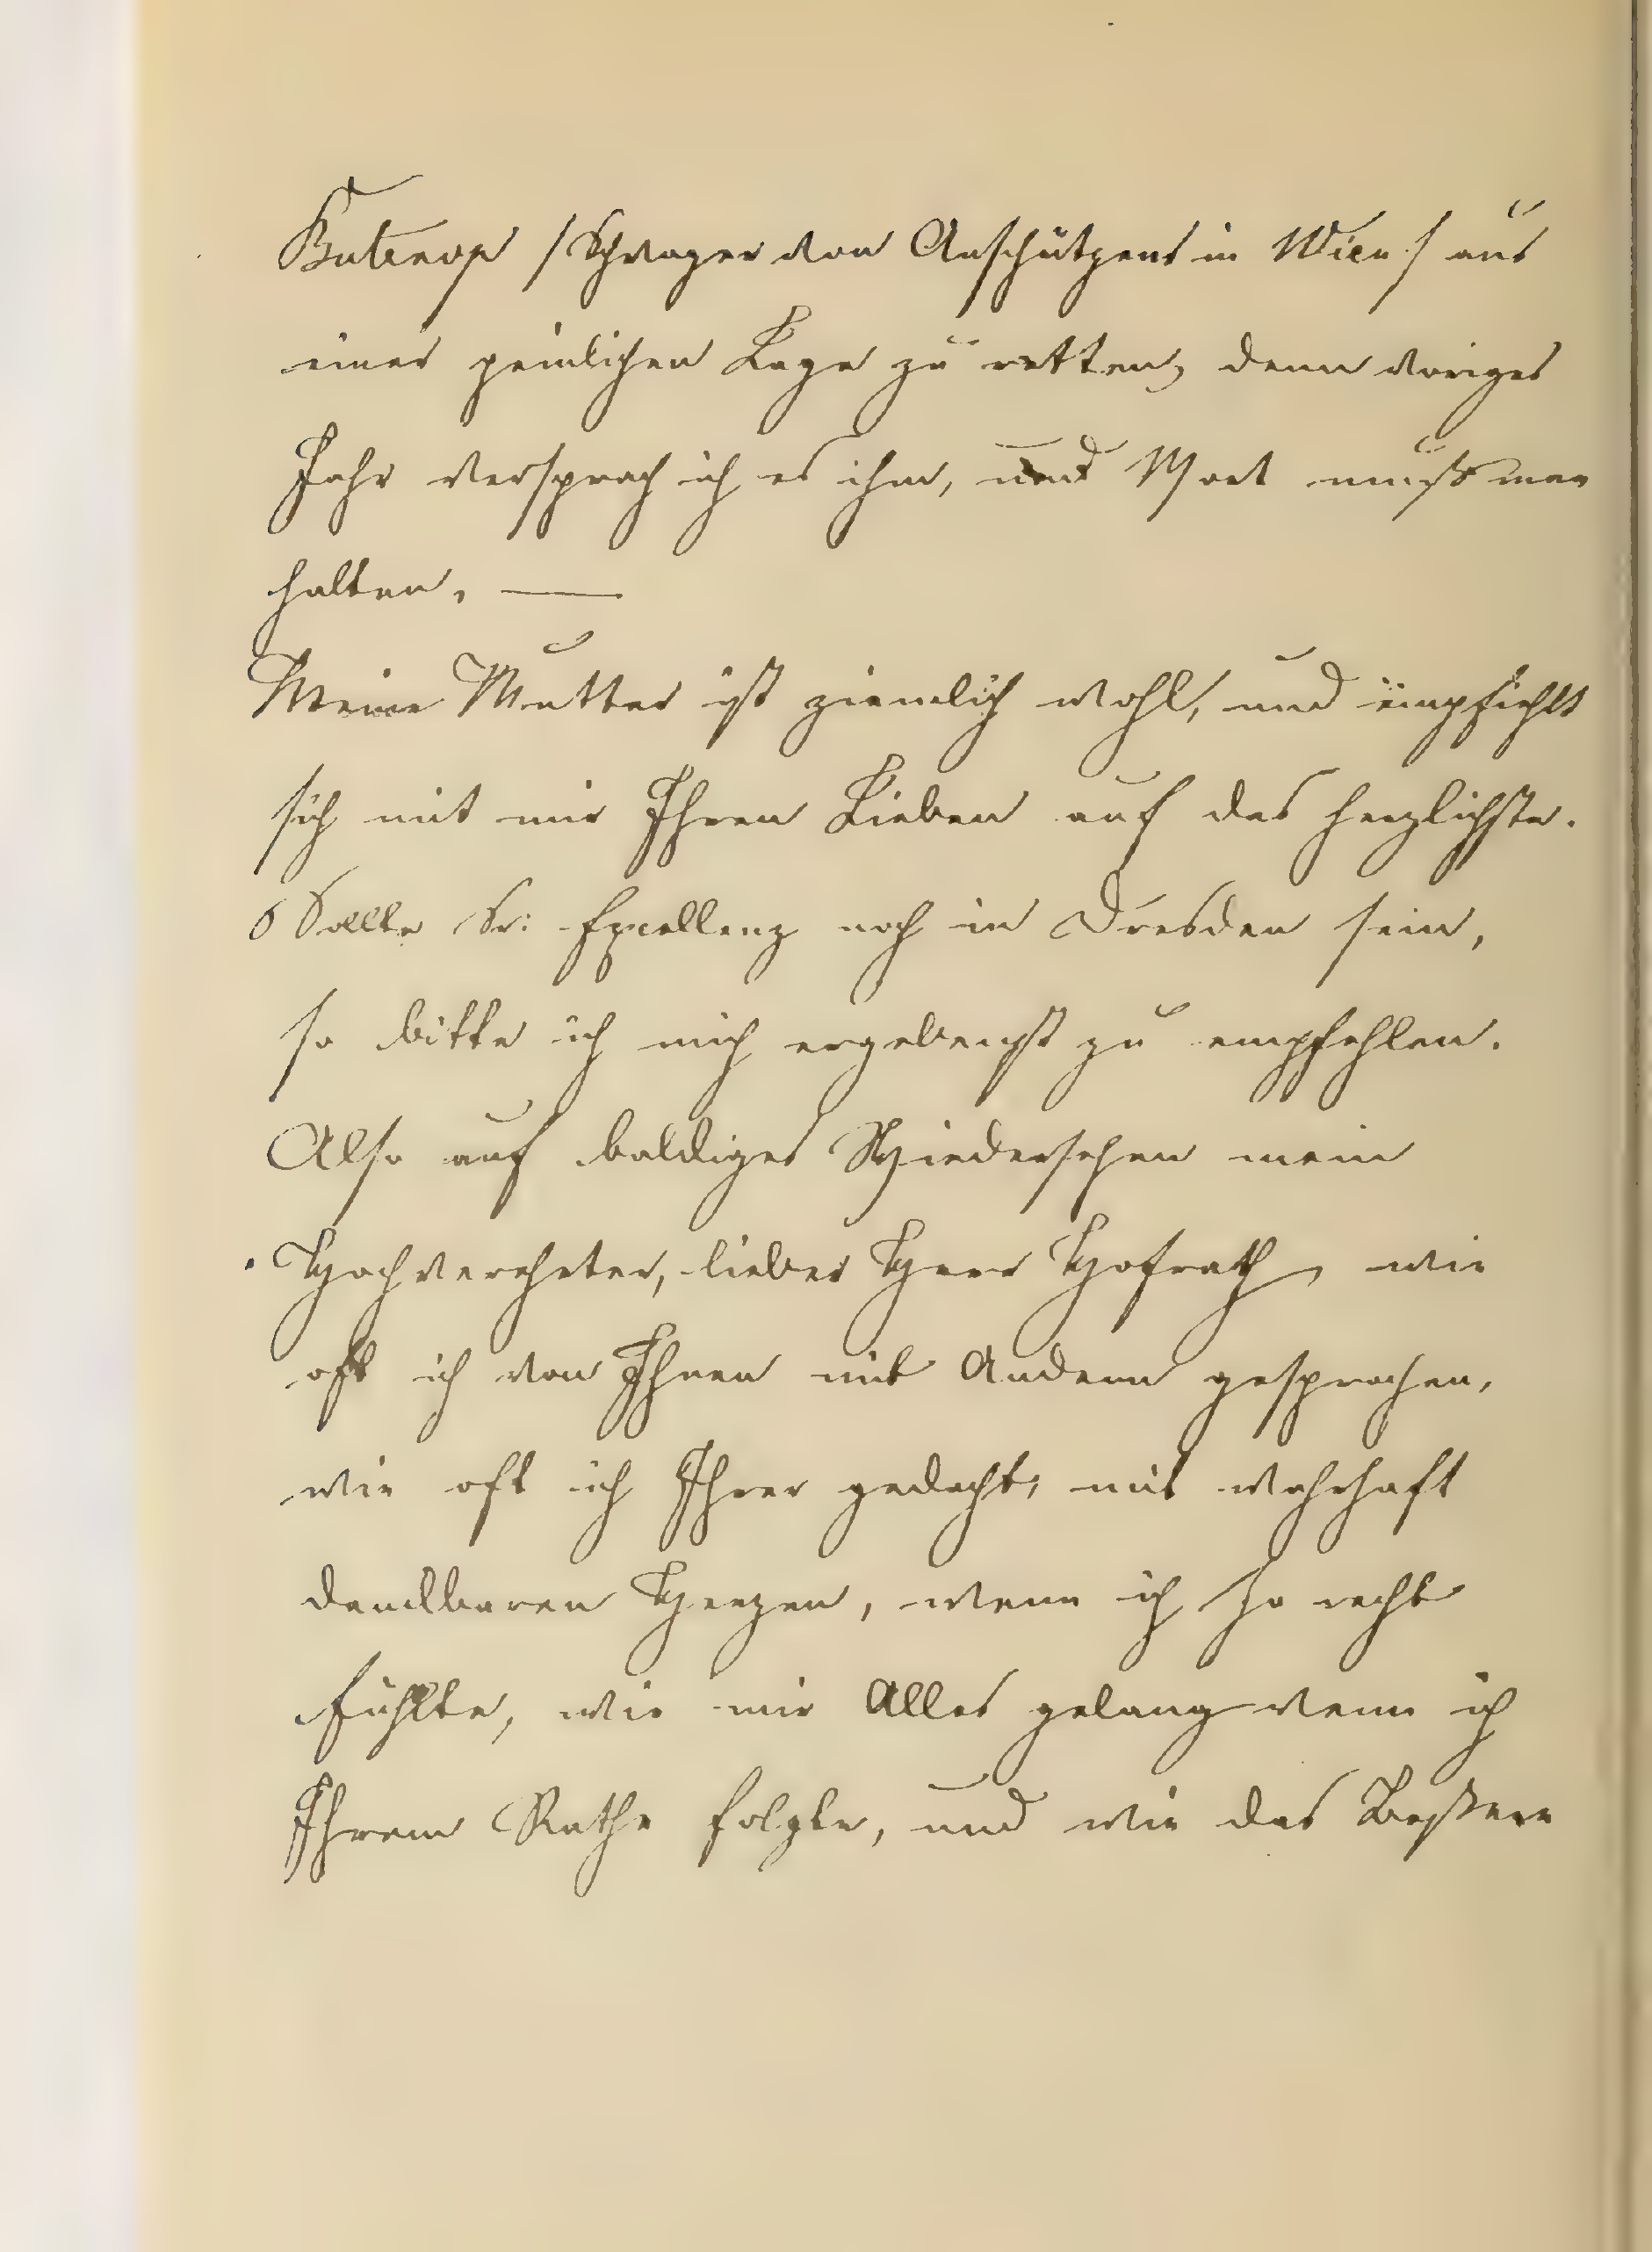 Butenop /Schwager von Anschützens in Wien / aus
einer peinlichen Lage zu retten, denn voriges
Jahr versprach ich es ihm, und Wort muß man
halten. —
Meine Mutter ist ziemlich wohl, und empfiehlt
sich mit mir Ihren Lieben auf das herzlichste.
Sollte Sr: Excellenz noch in Dresden sein,
so bitte ich mich ergebenst zu empfehlen.
Also auf baldiges Wiedersehen mein
Hochverehrter, lieber Herr Hofrath, wie
oft ich von Ihnen mit Andern gesprochen,
wie oft ich Ihrer gedacht, mit wahrhaft
dankbaren Herzen, wenn ich so recht
fühlte, wie mir Alles gelang wenn ich
Ihrem Rathe folgte, und wie das Bessere